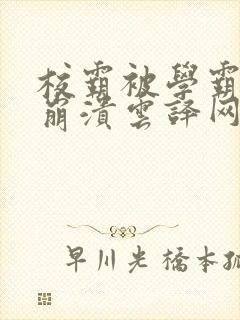 校霸被學霸
崩潰雲譯网
早川光橋本孤